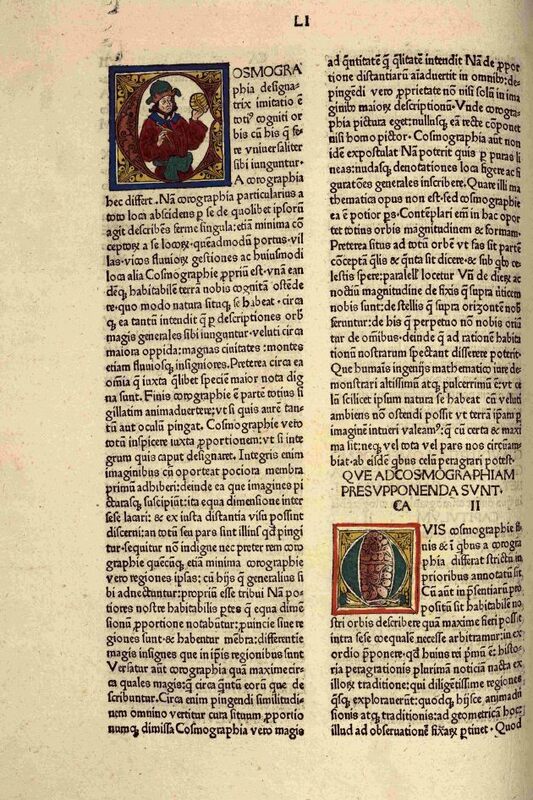 LI
OSMOGRA
phia designa-
trix imitatio ē
toti⁹ cogniti or
bis cū his q̄ fe
re vniuersaliter
sibi iunguntur·
A corographia
hec differt· Nā corographia particularius a
toto loca abscidens ꝑ se de quolibet ipsorū
agit describēs ferme singula: etiā minima cō
ceptoꝝ a se locoꝝ· queadmodū portus· vil
las· vicos fluuioꝝ gestiones ac huiusmodi
loca alia Cosmographie ꝓprīū est· vnā ean
dēqꝫ habitabilē terrā nobis cognitā ostēde
re· quo modo natura situqꝫ se habeat· circa
qꝫ ea tantū intendit q̄ ꝑ descriptiones orb̄
magis generales sibi iunguntur· veluti circa
maiora oppida: magnas ciuitates: montes
etiam fluuiosqꝫ insigniores· Preterea circa ea
om̄ia q̄ iuxta q̄libet speciē maior nota dig
na sunt· Finis corographie ē parte totius si
gillatim animaduertere: vt si quis aurē tan-
tū aut oculū pingat· Cosmographie vero
totū inspicere iuxta ꝓportionem: vt si inte
grum quis caput designaret· Integris enim
imaginibus cū oporteat pociora membra
primo adhiberi: deinde ea que imagines pi
cturasqꝫ suscipiūt: ita equa dimensione inter
sese locari: & ex iusta distantia visu possint
discerni: an totū seu pars sint illius qd̄ pingi
tur· sequitur nō indigne nec preter rem coro
graphie quecūqꝫ, etiā minima corographie
vero regiones ipsas: cū hijs q̄ generalius si
bi adnectuntur: propriū esse tribui Nā po-
tiores nostre habitabilis ꝑtes q̄ equa dimē
sionū ꝓportione notabūtur: ꝓuincie siue re
giones sunt· & habentur mēbra: differentie
magis insignes que in ip̄is regionibus sunt
Versatur aut̄ corographia quā maxime cir-
ca quales magis: q̄ circa q̄ntū eorū que de
scribuntur· Circa enim pingendi similitudi-
nem omnino vertitur cura situum ꝓportio
numqꝫ dimissa Cosmographia vero magis
ad q̄ntitatē q̄ q̄litatē intendit Nā de ꝓpor
tione distantiarū aīaduertit in omnibꝰ: de-
pingēdi vero ꝓprietatē nō nisi solū in ima
ginibꝰ maioꝝ descriptionū· Vnde corogra-
phia pictura eget: nullusqꝫ eā recte cōponet
nisi homo pictor· Cosmographia aut̄ non
idē expostulat Nā poterit quis ꝑ puras li
neas: nudasqꝫ denotationes loca figere ac fi
guratōes generales inscribere· Quare illi ma
thematica opus non est· sed cosmographie
ea ē potior ꝑs· Contemplari enī in hac opor
tet totius orbis magnitudinem & formam·
Preterea situs ad totū orbē vt fas sit partē
conceptā q̄lis & q̄nta sit dicere· & sub q̄to ce-
lestis spere: paralell' locetur Vn̄ de dierꝫ ac
noctiū magnitudine de fixis q̄ supra v̄ticem
nobis sunt: de stellis q̄ supra orizontē nob̄
feruntur: de his q̄ perpetuo nō nobis oriū
tur de omībus· deinde q̄ ad rationē habita
tionū nostrarum spectant disserere poterit·
Que humanis ingenijs mathematico iure de-
monstrari altissimū atqꝫ pulcerrimū ē: vt ce
lū scilicet ipsum natura se habeat cū veluti
ambiens nō ostendi possit vt terrā ip̄am ꝑ
imaginē intueri valeam⁹: q̄ cū certa & maxi
ma lit: neqꝫ vel tota vel pars nos circūam-
biat· ab eisdē q̄bus celū peragrari potest·
QVE ADCOSMOGRAPHIAM
PRESVPPONENDA SVNT·
CA II
VIS cosmographie fi
nis & ī q̄bus a corogra
phia differat strictū in
prioribus annotatū sit
Cū aut̄ in p̄sentiarū ꝓ
positū sit habitabile no
stri orbis describere quā maxime fieri posse
intra sese coequale necesse arbitramur: in ex
ordio p̄ponere· qd̄ huius rei pimū ē: histo-
ria peragrationis plurima noticiā nacta ex
illoꝝ traditione: qui diligētissime regiones
q̄sqꝫ explorauerūt: quodqꝫ hijsce animadū
sionis atqꝫ traditionis: ad geometricā hoc:
illud ad obseruationē fixaꝝ ꝑtinet· Quod